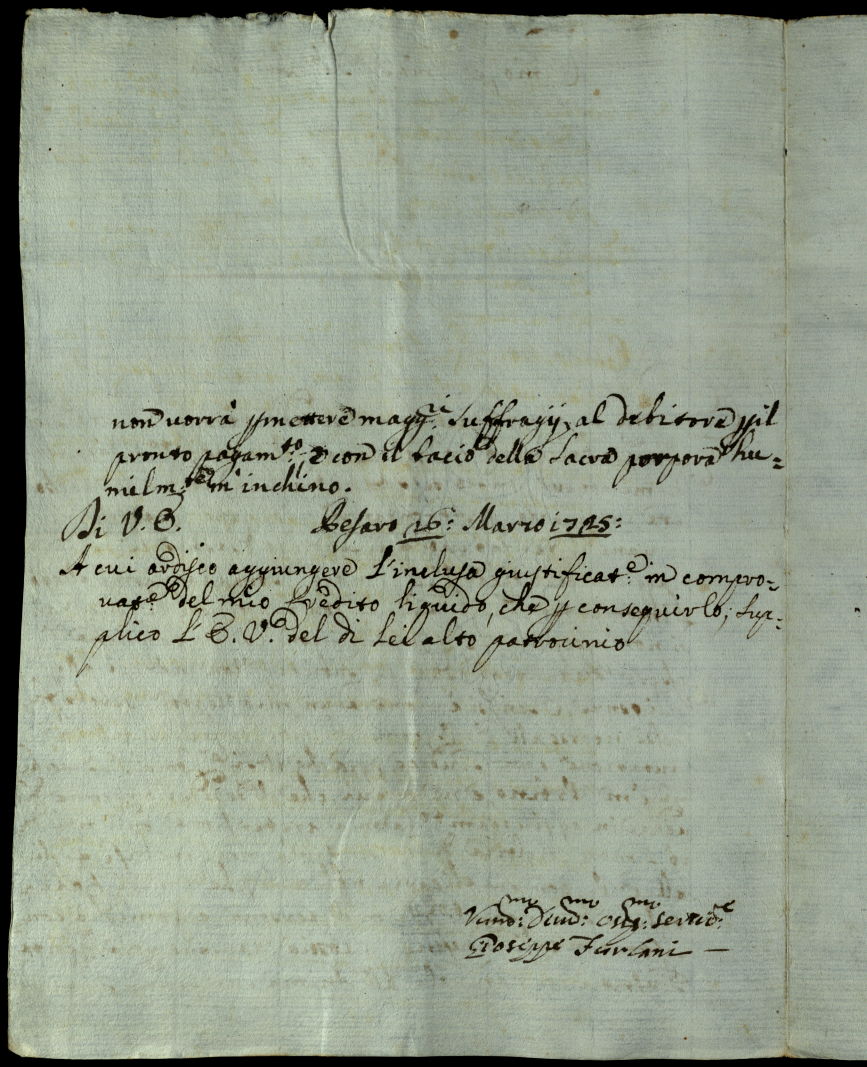 non vorrà pmettere magg.ri suffragij, al debitore p il
pronto pagam.to, e con il bacio della Sacra porpora hu=
milm.te m'inchino.
Di V. E. Pesaro 26: Marzo 1725:
A cui ardisco aggiungere l'inclusa giustificat.e in compro=
vaz.e del mio Credito liquido, che p conseguirlo, sup=
plico l'E. V. del di Lei alto patrocinio
Um.mo Div.mo oss.mo servid.re
Gioseppe Furlani